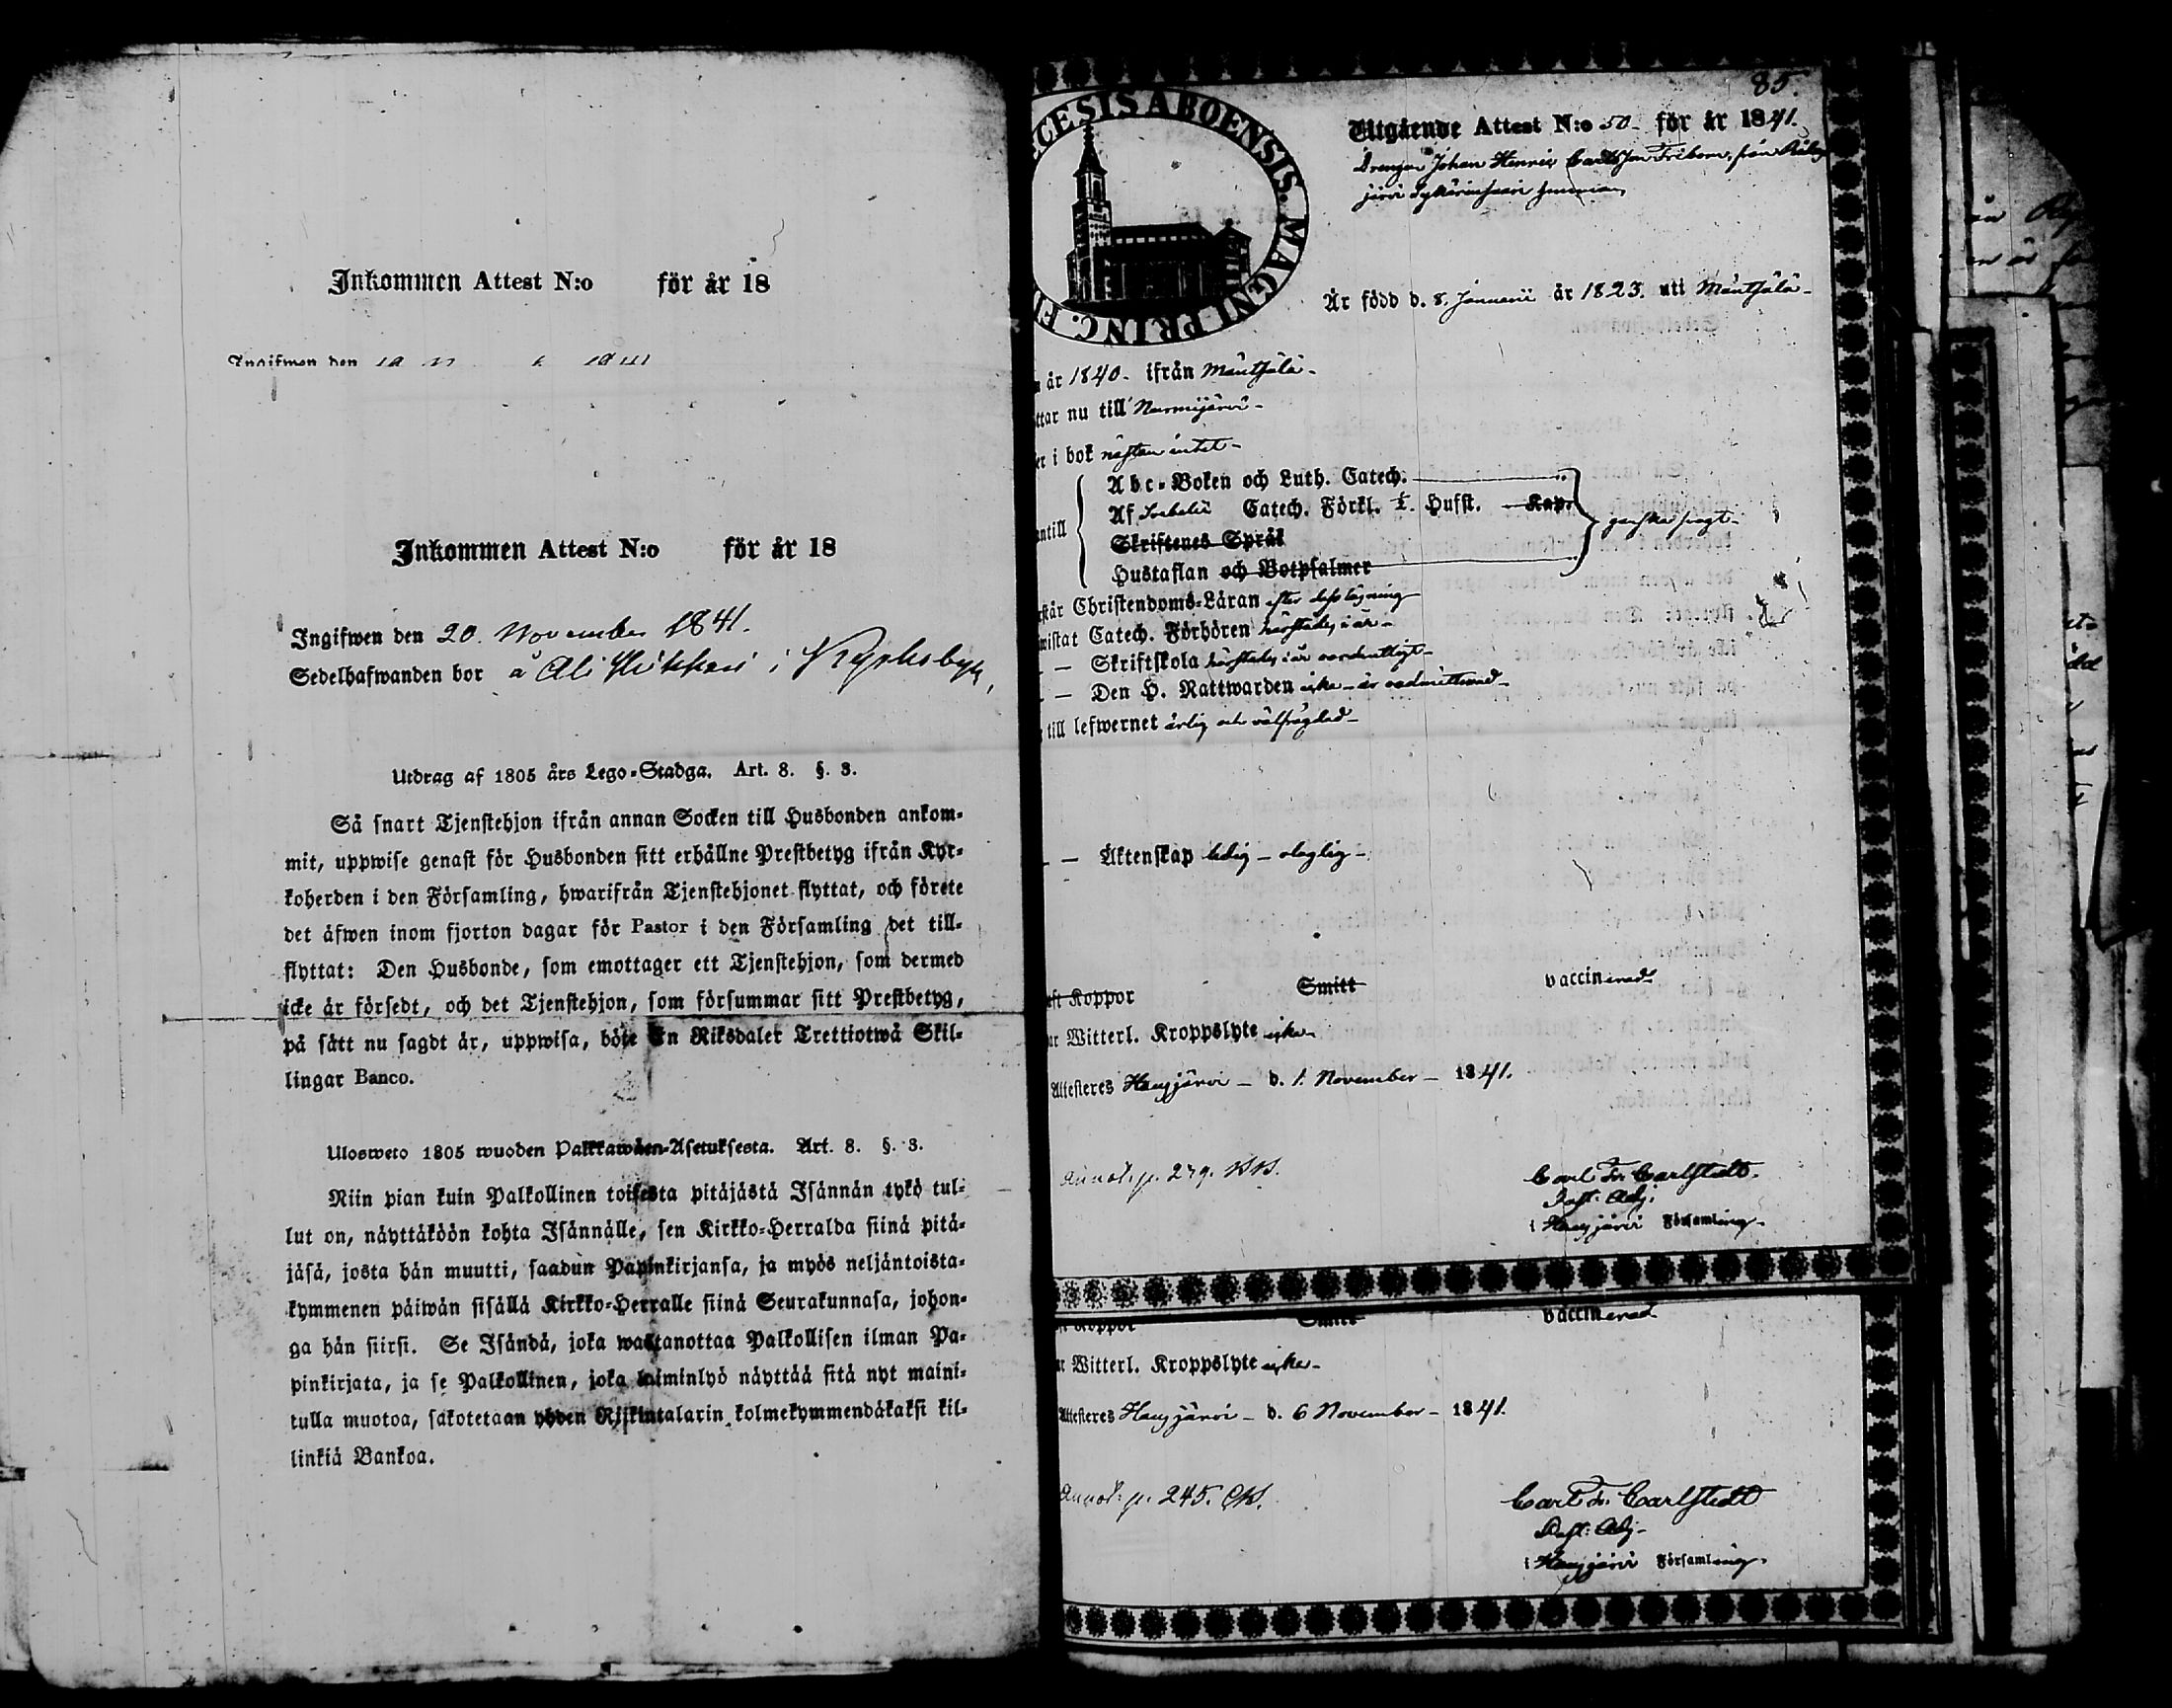 Inkommen Attest N:o för år 18
Ingifwen den
Inkommen Attest N:o för år 18
Ingifwen den 20. November 1841.
Sedelhafwanden bor å Ali i
Utdrag af 1805 års Lego-Stadga. Art. 8. §. 3.
Så snart Tjenstehjon ifrån annan Socken till Husbonden ankom-
mit, uppwise genast för Husbonden sitt erhållne Prestbetyg ifrån Kyr-
koherden i den Församling, hwarifrån Tjenstehjonet flyttat, och förete
det äfwen inom fjorton dagar för Pastor i den Församling det till-
flyttat: Den Husbonde, som emottager ett Tjenstehjon, som dermed
icke är försedt, och det Tjenstehjon, som försummar sitt Prestbetyg,
på sätt nu sagdt är, uppwisa, böte En Riksdaler Trettiotwå Skil-
lingar Banco.
Ulosweto 1805 wuoden Palkkawäen-Asetuksesta. Art. 8. §. 3.
Niin pian kuin Palkollinen toisesta pitäjästä Isännän tykö tul-
lut on, näyttäköön kohta Isännälle, sen Kirkko-Herralda siinä pitä-
jäsä, josta hän muutti, saadun Papinkirjansa, ja myös neljäntoista-
kymmenen päiwän sisällä Kirkko-Herralle siinä Seurakunnasa, johon-
ga hän siirsi. Se Isändä, joka wastanottaa Palkollisen ilman Pa-
pinkirjata, ja se Palkollinen, joka laiminlyö näyttää sitä nyt maini-
tulla muotoa, sakotetaan yhden Riikintalarin kolmekymmendäkaksi kil-
linkiä Bankoa.
85.
CESIS ABOENSIS. MAGNI PRINC. FI
Utgående Attest N:o 50 för år 1841.
Drengen Johan Henric Carlsson Friborn, från
järvi
Är född d. 8. Januarii år 1823. uti Mäntsälä
år 1840. ifrån Mäntsälä
ttar nu till Nurmijärvi
i bok nästan intet
Abc-Boken och Luth. Catech.
Af Svebelii Catech. Förkl. Husst. Kap.
antill ganska svagt
Skriftenes Språk
Hustaflan och Botpsalmer
rstår Christendoms-Läran efter
wistat Catech. Förhören härstädes i år
— Skriftskola härstädes i år ordentligt
— Den H. Nattwarden icke - är oadmitterad
till lefwernet ärlig och välfrägdad
— Äktenskap ledig
Koppor Smitt vaccinerad
Witterl. Kroppslyte icke
Attesteres Hausjärvi d. 1. November 1841.
Annot. p. 279.
Carl Fr. Carlstedt.
Past. Adj.
i Hausjärvi Församling
Koppor Smitt vaccinerad
Witterl. Kroppslyte icke
Attesteres Hausjärvi d. 6 November 1841.
Annot. p. 245.
Carl Fr. Carlstedt
Past. Adj.
i Hausjärvi Församling.